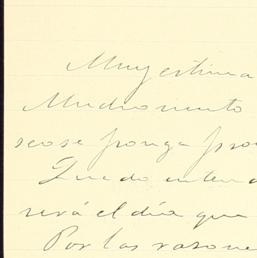 Muy estima
Mucho siento
seo se ponga pron
Quedo entera
será el día que
Por las razone